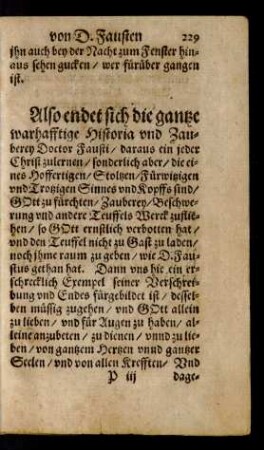 von D. Fausten 229
jhn auch bey der Nacht zum Fenster hin-
aus sehen gucken / wer fürüber gangen
ist.
Also endet sich die gantze
warhafftige Historia vnd Zau-
berey Doctor Fausti / daraus ein jeder
Christ zulernen / sonderlich aber / die ei-
nes Hoffertigen / Stoltzen / Fürwitzigen
vnd Trotzigen Sinnes vnd Kopffs sind /
GOtt zu fürchten / Zauberey / Beschwe-
rung vnd andere Teuffels Werck zuflie-
hen / so GOtt ernstlich verbotten hat /
vnd den Teuffel nicht zu Gast zu laden /
noch jhme raum zu geben / wie D. Fau-
stus gethan hat. Dann vns hie ein er-
schrecklich Exempel seiner Verschrei-
bung vnd Endes fürgebildet ist / dessel-
ben müssig zugehen / vnd GOtt allein
zu lieben / vnd für Augen zu haben / al-
leine anzubeten / zu dienen / vnnd zu lie-
ben / von gantzem Hertzen vnnd gantzer
Seelen / vnd von allen Krefften / Vnd
P iij dage-